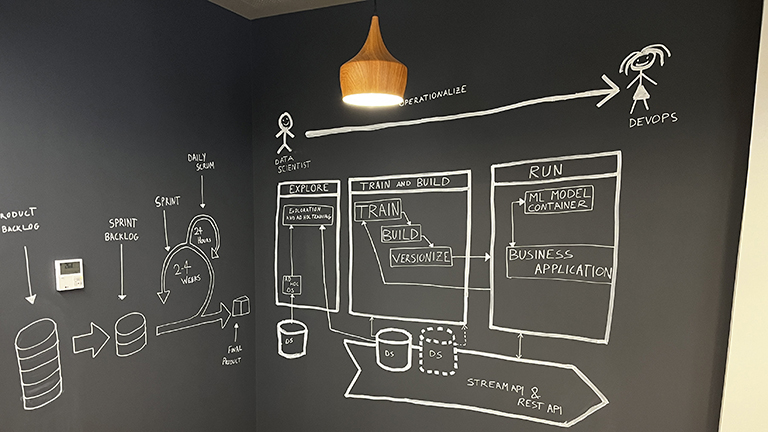 OPERATIONALIZE
DATA
SCIENTIST
DEVOPS
PRODUCT
BACKLOG
SPRINT
BACKLOG
SPRINT
DAILY
SCRUM
24
HOURS
2-4
WEEKS
FINAL
PRODUCT
EXPLORE
EXPLORATION
AND AD HOC TRAINING
AD
HOC
DS
DS
TRAIN AND BUILD
TRAIN
BUILD
VERSIONIZE
RUN
ML MODEL
CONTAINER
BUSINESS
APPLICATION
DS
DS
STREAM API &
REST API